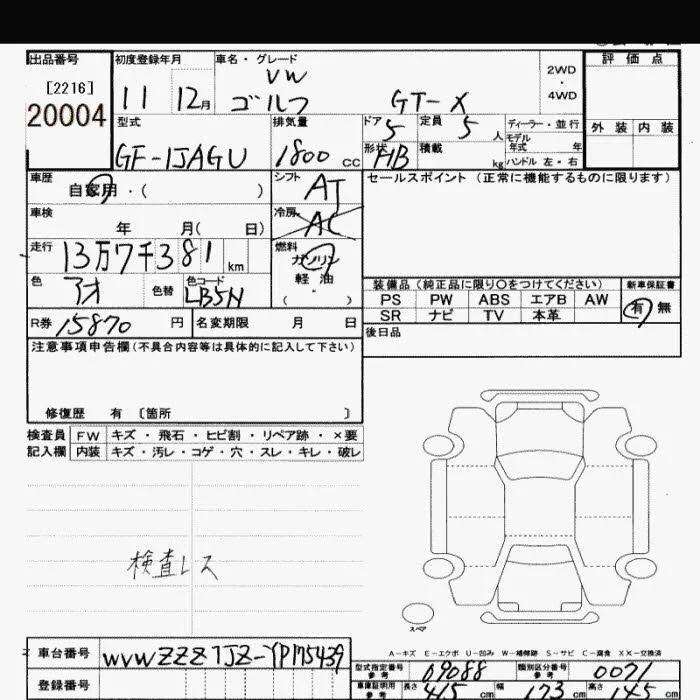 出品番号 初度登録年月 車名・グレード 評価点
[2216] VW 2WD
20004 11 12月 ゴルフ GT-X 4WD
型式 排気量 ドア 定員 ディーラー・並行 外装 内装
GF-1JAGU 1800 cc 5 5人 モデル年式 年
形状 HB 積載 kg ハンドル 左・右
車歴 自家用・( ) シフト AT セールスポイント(正常に機能するものに限ります)
車検 年 月( 日) 冷房 AC
走行 13万7千381km 燃料 ガソリン
軽油
( )
色 アオ 色替 色コード LB5N 装備品(純正品に限り○をつけてください) 新車保証書
PS PW ABS エアB AW 有 無
R券 15870円 名変期限 月 日 SR ナビ TV 本革
後日品
注意事項申告欄(不具合内容等は具体的に記入して下さい)
修復歴 有 〔箇所 〕
検査員 FW キズ・飛石・ヒビ割・リペア跡・×要
記入欄 内装 キズ・汚レ・コゲ・穴・スレ・キレ・破レ
検査レス
スペア
A-キズ E-エクボ U-凹み W-補修跡 S-サビ C-腐食 XX-交換済
車台番号 WVWZZZ1JZ-YPM75439
型式指定番号 参考 09088 類別区分番号 参考 0071
登録番号 車庫証明用 参考 長さ 415cm 幅 173cm 高さ 145cm